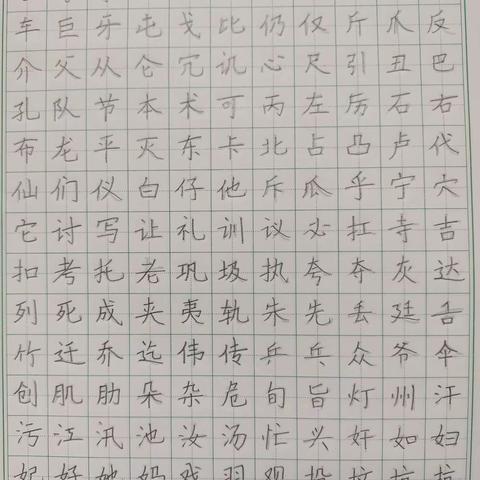 车巨牙屯戈比仍仅斤爪反
介父从仑冗讥心尺引丑巴
孔队节本术可丙左厉石右
布龙平灭东卡北占凸卢代
仙们仪白仔他斥瓜乎宁穴
它讨写让礼训议必扛寺吉
扣考托老巩圾执夸夺灰达
列死成夹夷轨朱先丢廷舌
竹迁乔迄伟传乒乓众爷伞
创肌肋朵杂危旬旨灯州汗
污江汛池汝汤忙兴奸如妇
妃好她妈戏羽观投坟坑抗